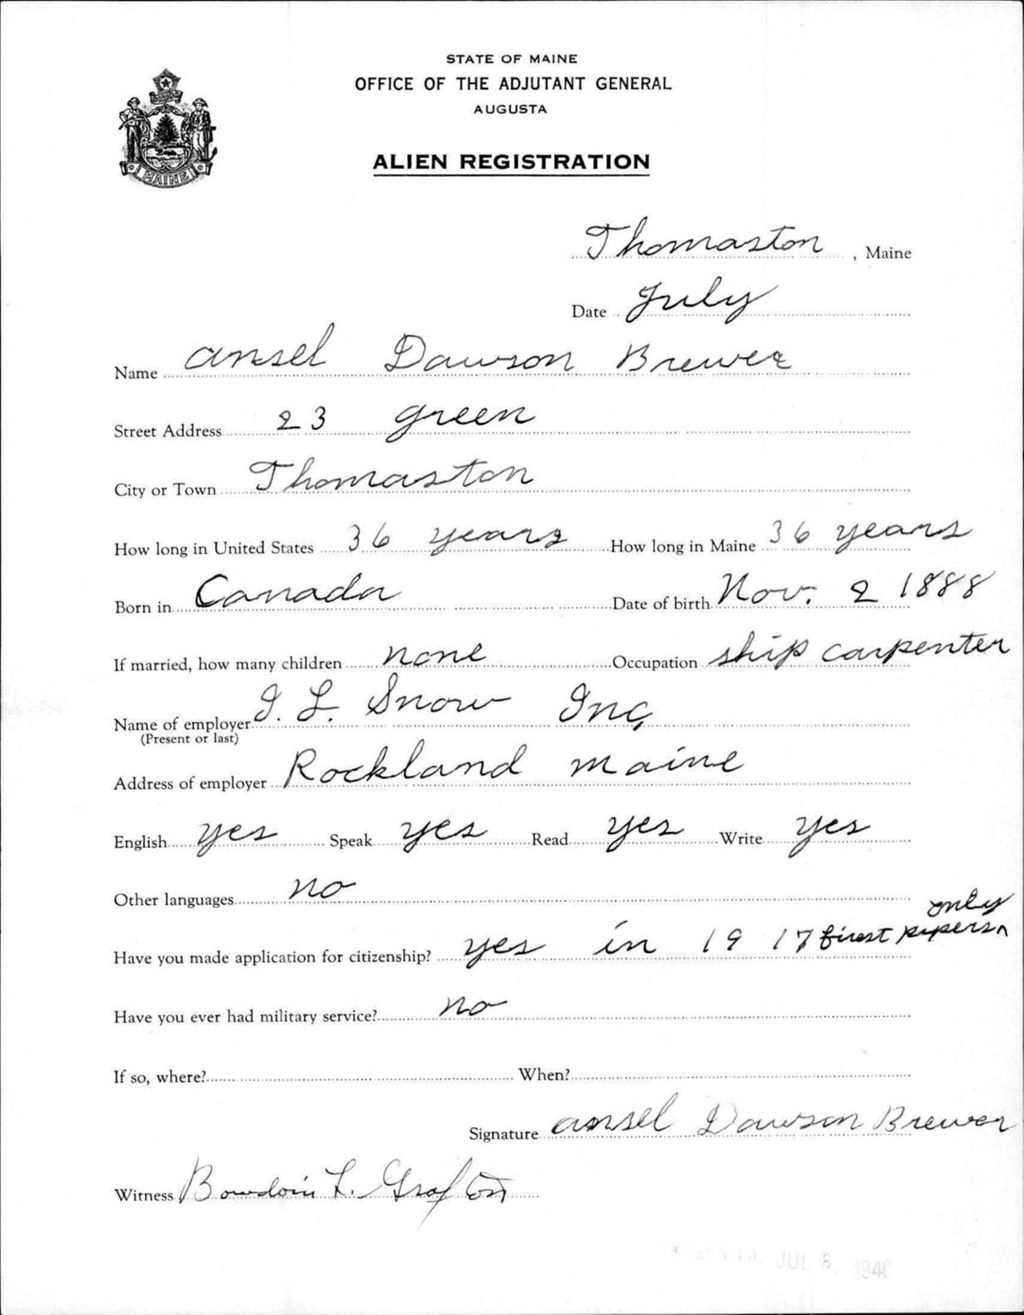 STATE OF MAINE
OFFICE OF THE ADJUTANT GENERAL
AUGUSTA
ALIEN REGISTRATION
MAINE
Thomaston, Maine
Date July
Name Ansel Dawson Brewer
Street Address 23 Green
City or Town Thomaston
How long in United States 36 years How long in Maine 36 years
Born in Canada Date of birth Nov. 2 1888
If married, how many children none Occupation ship carpenter
Name of employer I. L. Snow Inc.
(Present or last)
Address of employer Rockland Maine
English yes Speak yes Read yes Write yes
Other languages no
only
Have you made application for citizenship? yes in 1917 first papers
Have you ever had military service? no
If so, where? When?
Signature Ansel Dawson Brewer
Witness Bowdoin L. Grafton
JUL 8 1940